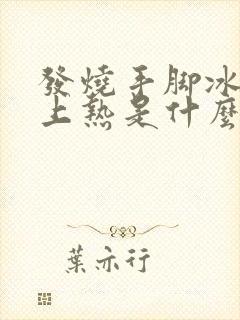 發燒手脚冰
上熱是什麼
葉亦行